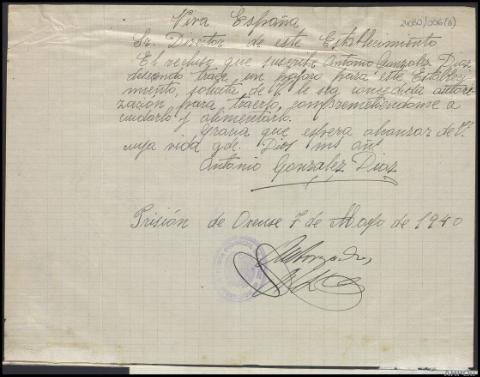 Viva España
2080/006(8)
Sr. Director de este Establecimiento
El recluso que suscribe Antonio Gonzalez Dios,
deseando traer un pajaro para este Estableci
miento, solicita de V. le sea concedida autori
zación para traerlo, comprometiendome a
cuidarlo y alimentarlo.
Gracia que espera alcanzar de V.
cuya vida gde. Dios ms. añs.
Antonio Gonzalez Dios
Prisión de Orense 7 de Mayo de 1940